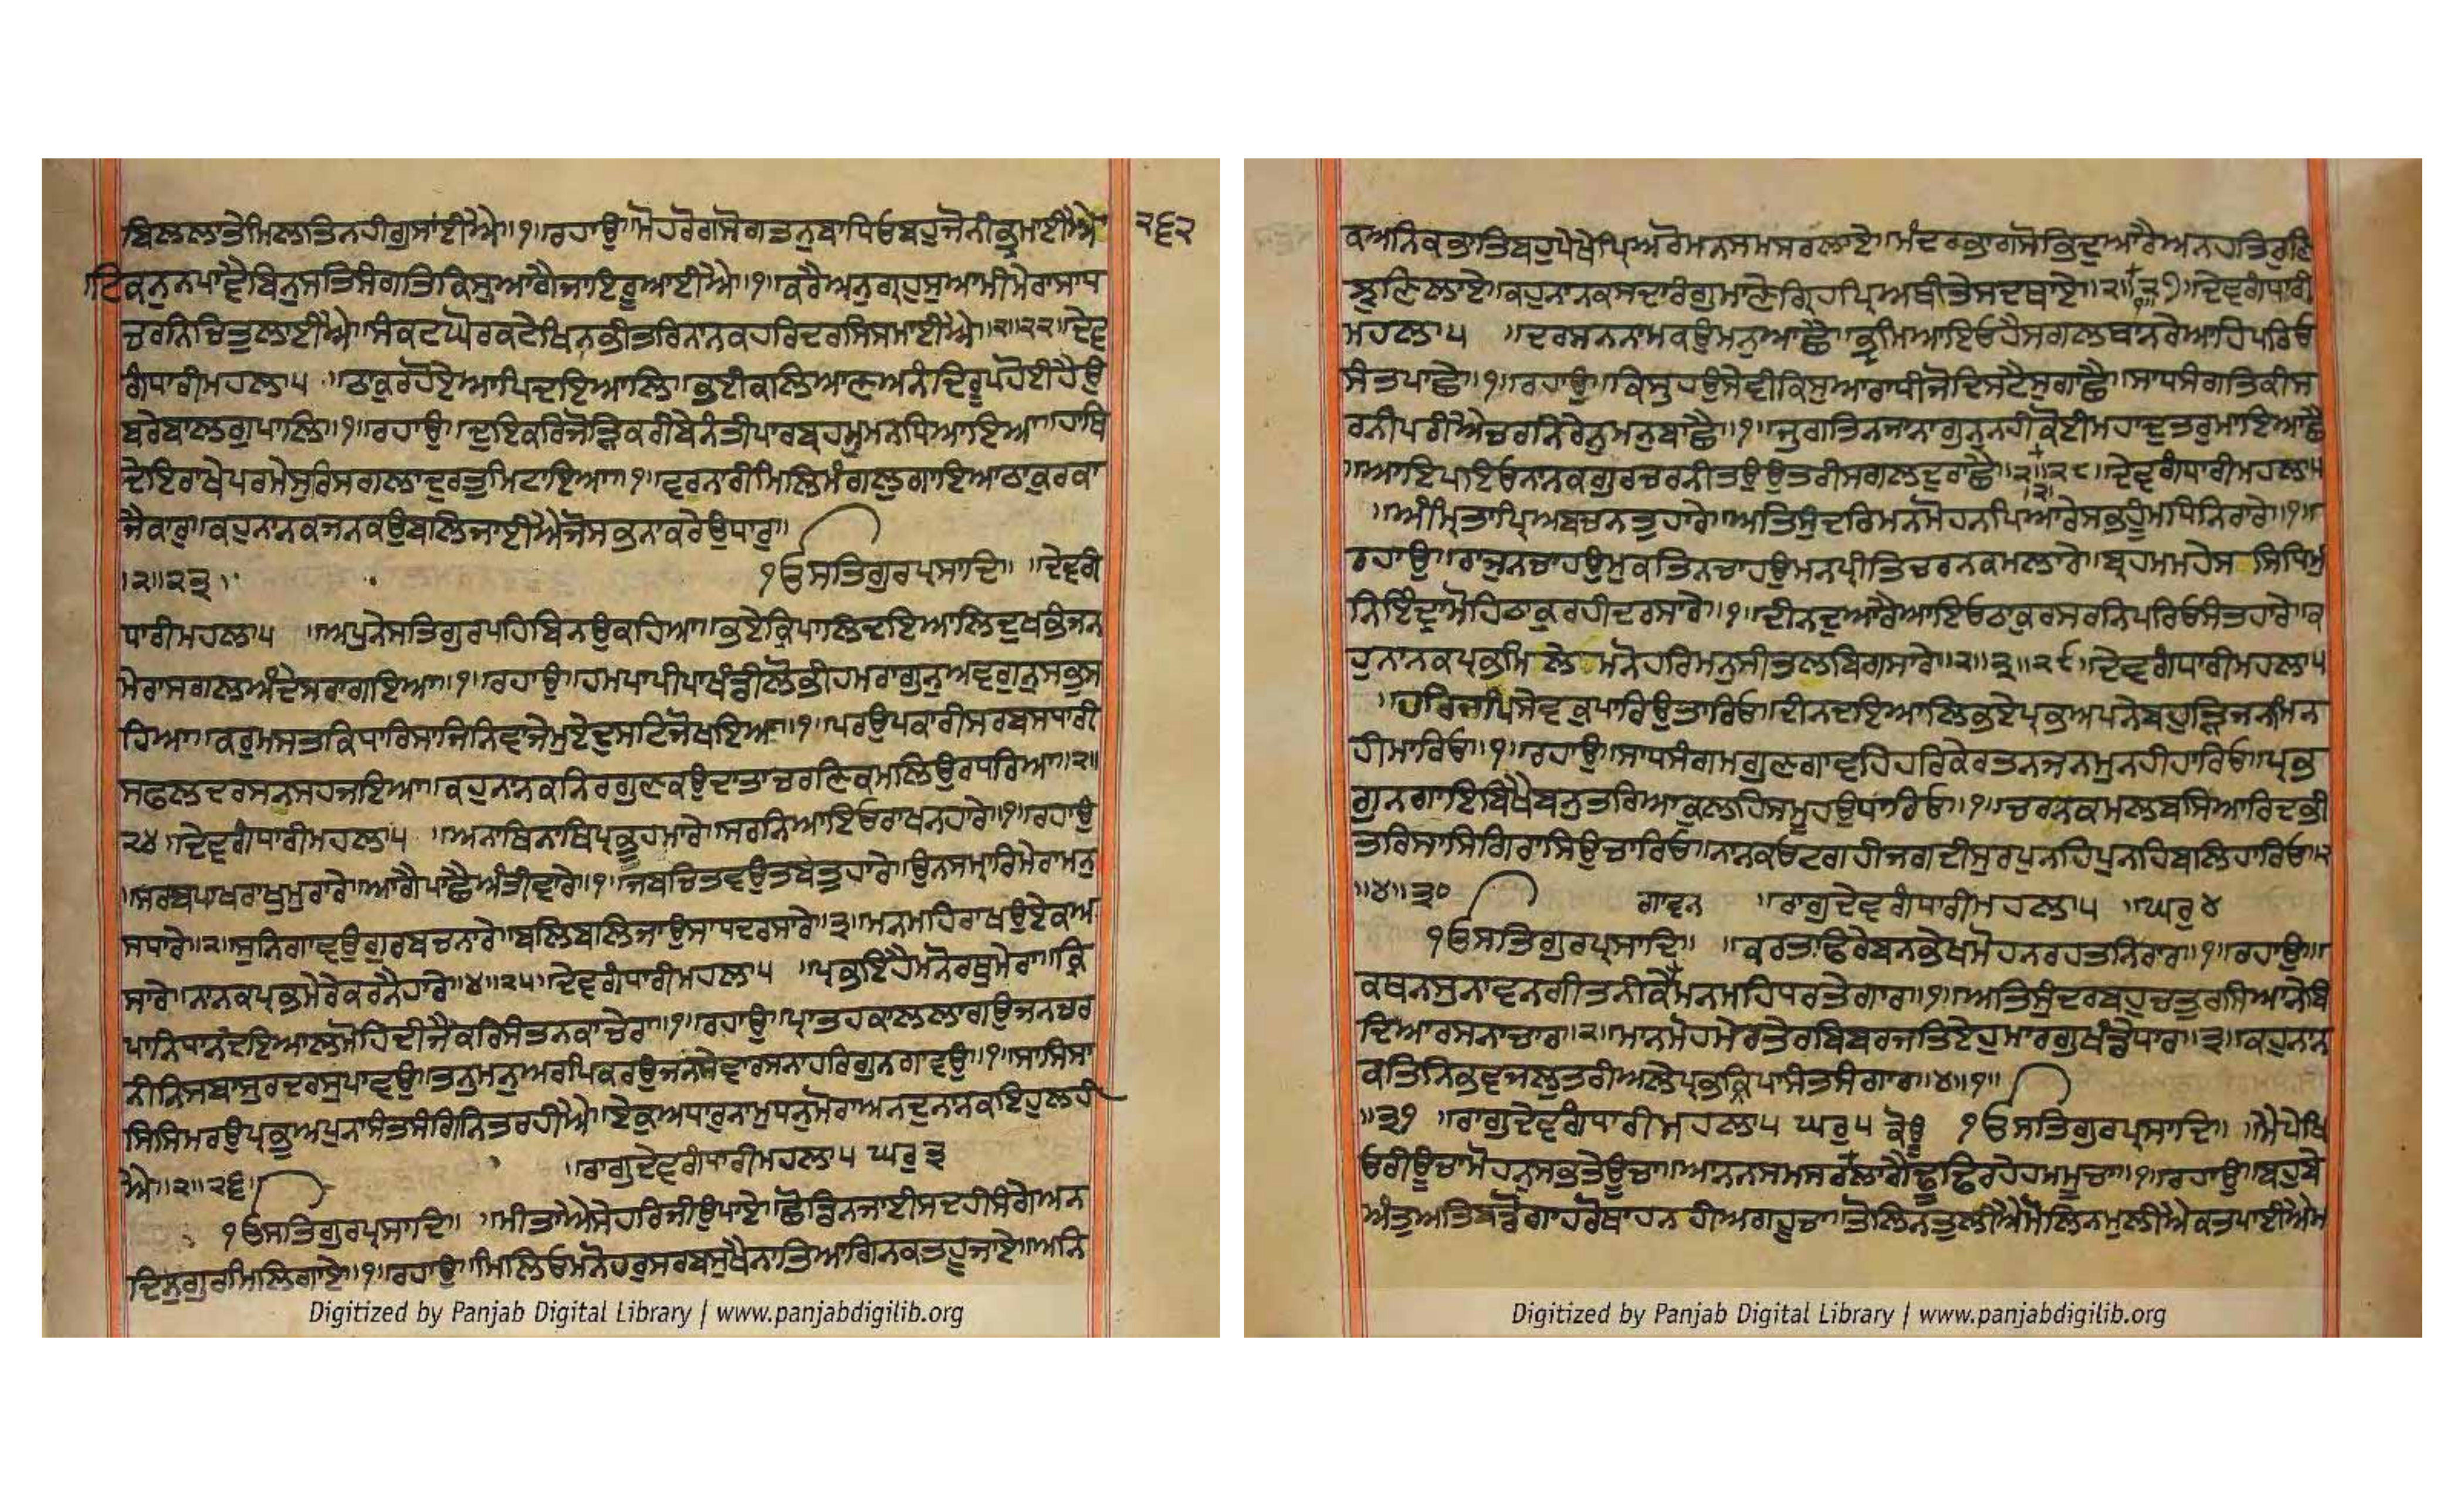 ਬਿਲਲਾਤੇਮਿਲਤਿਨਹੀਗੁਸਾਈਐ॥੧॥ਰਹਾਉ॥ਮੋਹਰੋਗਸੋਗਤਨੁਬਾਧਿਓਬਹੁਜੋਨੀਭ੍ਰਮਾਈਐ
੨੬੨
ਟਿਕਨੁਨਪਾਵੈਬਿਨੁਸਤਿਸੰਗਤਿਕਿਸੁਆਗੈਜਾਇਰੂਆਈਐ॥੧॥ਕਰੈਅਨੁਗ੍ਰਹੁਸੁਆਮੀਮੇਰਾਸਾਧ
ਚਰਨਿਚਿਤੁਲਾਈਐ॥ਸੰਕਟਘੋਰਕਟੇਖਿਨਭੀਤਰਿਨਾਨਕਹਰਿਦਰਸਿਸਮਾਈਐ॥੨॥੨੨॥ਦੇਵ
ਗੰਧਾਰੀਮਹਲਾ੫ ॥ਠਾਕੁਰਹੋਏਆਪਿਦਇਆਲਿ॥ਭਈਕਲਿਆਣਅਨੰਦਰੂਪਹੋਈਹੈਉ
ਬਰੇਬਾਲਗੁਪਾਲਿ॥੧॥ਰਹਾਉ॥ਦੁਇਕਰਜੋੜਿਕਰੀਬੇਨੰਤੀਪਾਰਬ੍ਰਹਮੁਮਨਧਿਆਇਆ॥ਹਾਥਿ
ਦੇਇਰਾਖੇਪਰਮੇਸੁਰਿਸਗਲਾਦੁਰਤੁਮਿਟਾਇਆ॥੧॥ਵਰਨਾਰੀਮਿਲਿਮੰਗਲੁਗਾਇਆਠਾਕੁਰਕਾ
ਜੈਕਾਰੁ॥ਕਹੁਨਾਨਕਜਨਕਉਬਲਿਜਾਈਐਜੋਸਭਨਾਕਰੇਉਧਾਰੁ॥
॥੨॥੨੩॥ ੴਸਤਿਗੁਰਪ੍ਰਸਾਦਿ॥ ॥ਦੇਵਗੰ
ਧਾਰੀਮਹਲਾ੫ ॥ਅਪੁਨੇਸਤਿਗੁਰਪਹਿਬਿਨਉਕਹਿਆ॥ਭਏਕ੍ਰਿਪਾਲਿਦਇਆਲਿਦੁਖਭੰਜਨ
ਮੇਰਾਸਗਲਅੰਦੇਸਰਾਗਇਆ॥੧॥ਰਹਾਉ॥ਹਮਪਾਪੀਪਾਖੰਡੀਲੋਭੀਹਮਰਾਗੁਨੁਅਵਗੁਨੁਸਭੁਸ
ਹਿਆ॥ਕਰੁਮਸਤਕਿਧਾਰਿਸਾਜਿਨਿਵਾਜੇਮੁਏਦੁਸਟਿਜੋਖਇਆ॥੧॥ਪਰਉਪਕਾਰੀਸਰਬਸਧਾਰੀ
ਸਫਲਦਰਸਨਸਹਜਇਆ॥ਕਹੁਨਾਨਕਨਿਰਗੁਣਕਉਦਾਤਾਚਰਣਿਕਮਲਿਉਰਧਰਿਆ॥੨॥
੨੪॥ਦੇਵਗੰਧਾਰੀਮਹਲਾ੫ ॥ਅਨਾਥਿਨਾਥਿਪ੍ਰਭੂਹਮਾਰੇ॥ਸਰਨਿਆਇਓਰਾਖਨਹਾਰੇ॥੧॥ਰਹਾਉ
॥ਸਰਬਪਾਖਰਾਖੁਮੁਰਾਰੇ॥ਆਗੈਪਾਛੈਅੰਤੀਵਾਰੇ॥੧॥ਜਬਚਿਤਵਉਤਬਤੁਹਾਰੇ॥ਉਨਸਮਾਰਿਮੇਰਾਮਨੁ
ਸਧਾਰੇ॥੨॥ਸੁਨਿਗਾਵਉਗੁਰਬਚਨਾਰੇ॥ਬਲਿਬਲਿਜਾਉਸਾਧਦਰਸਾਰੇ॥੩॥ਮਨਮਹਿਰਾਖਉਏਕਅ
ਸਾਰੇ॥ਨਾਨਕਪ੍ਰਭਮੇਰੇਕਰਨੈਹਾਰੇ॥੪॥੨੫॥ਦੇਵਗੰਧਾਰੀਮਹਲਾ੫ ॥ਪ੍ਰਭਇਹੈਮਨੋਰਥੁਮੇਰਾ॥ਕ੍ਰਿ
ਪਾਨਿਧਾਨਦਇਆਲਮੋਹਿਦੀਜੈਕਰਿਸੰਤਨਕਾਚੇਰਾ॥੧॥ਰਹਾਉ॥ਪ੍ਰਾਤਹਕਾਲਲਾਗਉਜਨਚਰ
ਨੀਨਿਸਬਾਸੁਰਦਰਸੁਪਾਵਉ॥ਤਨੁਮਨੁਅਰਪਿਕਰਉਜਨਸੇਵਾਰਸਨਾਹਰਿਗੁਨਗਾਵਉ॥੧॥ਸਾਸਿਸਾ
ਸਿਸਿਮਰਉਪ੍ਰਭੁਅਪੁਨਾਸੰਤਸੰਗਿਨਿਤਰਹੀਐ॥ਏਕੁਅਧਾਰੁਨਾਮੁਧਨੁਮੋਰਾਅਨਦੁਨਾਨਕਇਹੁਲਹੀ
ਐ॥੨॥੨੬॥ ॥ਰਾਗੁਦੇਵਗੰਧਾਰੀਮਹਲਾ੫ ਘਰੁ੩
ੴਸਤਿਗੁਰਪ੍ਰਸਾਦਿ॥ ॥ਮੀਤਾਐਸੇਹਰਿਜੀਉਪਾਏ॥ਛੋਡਿਨਜਾਈਸਦਹੀਸੰਗੇਅਨ
ਦਿਨੁਗੁਰਮਿਲਿਗਾਏ॥੧॥ਰਹਾਉ॥ਮਿਲਿਓਮਨੋਹਰੁਸਰਬਸੁਖੈਨਾਤਿਆਗਿਨਕਤਹੂਜਾਏ॥ਅਨਿ
Digitized by Panjab Digital Library | www.panjabdigilib.org
ਕਅਨਿਕਭਾਤਿਬਹੁਪੇਖੇਪ੍ਰਿਅਰੋਮਨਸਮਸਰਲਾਏ॥ਮੰਦਰਭਾਗਸੋਭਦੁਆਰੈਅਨਹਤਿਰੁਣ
ਝੁਣਿਲਾਏ॥ਕਹੁਨਾਨਕਸਦਾਰੰਗੁਮਾਣੇਗ੍ਰਿਹਪ੍ਰਿਅਥੀਤੇਸਦਥਾਏ॥੨॥੧॥੨੭॥ਦੇਵਗੰਧਾਰੀ
ਮਹਲਾ੫ ॥ਦਰਸਨਨਾਮਕਉਮਨੁਆਛੈ॥ਭ੍ਰਮਿਆਇਓਹੈਸਗਲਥਾਨਰੇਆਹਿਪਰਿਓ
ਸੰਤਪਾਛੈ॥੧॥ਰਹਾਉ॥ਕਿਸੁਹਉਸੇਵੀਕਿਸੁਆਰਾਧੀਜੋਦਿਸਟੈਸੁਗਾਛੈ॥ਸਾਧਸੰਗਤਿਕੀਸ
ਰਨੀਪਰੀਐਚਰਨਿਰੇਨੁਮਨੁਬਾਛੈ॥੧॥ਜੁਗਤਿਨਜਾਨਾਗੁਨੁਨਹੀਕੋਈਮਹਾਦੁਤਰੁਮਾਇਆਛੈ
॥ਆਇਪਇਓਨਾਨਕਗੁਰਚਰਨੀਤਉਉਤਰੀਸਗਲਦੁਰਾਛੈ॥੨॥੨॥੨੮॥ਦੇਵਗੰਧਾਰੀਮਹਲਾ੫
॥ਅੰਮ੍ਰਿਤਾਪ੍ਰਿਅਬਚਨਤੁਹਾਰੇ॥ਅਤਿਸੁੰਦਰਿਮਨਮੋਹਨਪਿਆਰੇਸਭਹੂਮਧਿਨਿਰਾਰੇ॥੧॥
ਰਹਾਉ॥ਰਾਜੁਨਚਾਹਉਮੁਕਤਿਨਚਾਹਉਮਨਪ੍ਰੀਤਿਚਰਨਕਮਲਾਰੇ॥ਬ੍ਰਹਮਮਹੇਸ ਸਿਧਿਮੁ
ਨਿਇੰਦ੍ਰਾਮੋਹਿਠਾਕੁਰਹੀਦਰਸਾਰੇ॥੧॥ਦੀਨਦੁਆਰੈਆਇਓਠਾਕੁਰਸਰਨਿਪਰਿਓਸੰਤਹਾਰੇ॥ਕ
ਹੁਨਾਨਕਪ੍ਰਭਮਿ ਲੇ ਮਨੋਹਰਿਮਨੁਸੀਤਲਬਿਗਸਾਰੇ॥੨॥੩॥੨੯॥ਦੇਵਗੰਧਾਰੀਮਹਲਾ੫
॥ਹਰਿਜਪਿਸੇਵਕੁਪਾਰਿਉਤਾਰਿਓ॥ਦੀਨਦਇਆਲਿਭਏਪ੍ਰਭਅਪਨੇਬਹੁੜਿਜਨਮਿਨ
ਹੀਮਾਰਿਓ॥੧॥ਰਹਾਉ॥ਸਾਧਸੰਗਮਗੁਣਗਾਵਹਿਹਰਿਕੇਰਤਨਜਨਮੁਨਹੀਹਾਰਿਓ॥ਪ੍ਰਭ
ਗੁਨਗਾਇਬਿਖੈਬਨੁਤਰਿਆਕੁਲਹਿਸਮੂਹਉਧਾਰਿਓ॥੧॥ਚਰਨਕਮਲਬਸਿਆਰਿਦਭੀ
ਤਰਿਸਾਸਿਗਿਰਾਸਿਉਚਾਰਿਓ॥ਨਾਨਕਓਟਗਹੀਜਗਦੀਸੁਰਪੁਨਹਿਪੁਨਹਿਬਲਿਹਾਰਿਓ॥੨
॥੪॥੩੦ ਗਾਵਨ ॥ਰਾਗੁਦੇਵਗੰਧਾਰੀਮਹਲਾ੫ ॥ਘਰੁ੪
ੴਸਤਿਗੁਰਪ੍ਰਸਾਦਿ॥ ॥ਕਰਤਫਿਰੇਬਨਭੇਖਮੋਹਨਰਹਤਨਿਰਾਰ॥੧॥ਰਹਾਉ॥
ਕਥਨਸੁਨਾਵਨਗੀਤਨੀਕੇਮਨਮਹਿਧਰਤੇਗਾਰ॥੧॥ਅਤਿਸੁੰਦਰਬਹੁਚਤੁਰਸਿਆਨੇਬਿ
ਦਿਆਰਸਨਾਚਾਰ॥੨॥ਮਾਨਮੋਹਮੇਰਤੇਰਬਿਬਰਜਤਿਏਹੁਮਾਰਗੁਖੰਡੇਧਾਰ॥੩॥ਕਹੁਨਾਨ
ਕਤਿਨਿਭਵਜਲੁਤਰੀਅਲੇਪ੍ਰਭਕ੍ਰਿਪਾਸੰਤਸੰਗਾਰ॥੪॥੧॥
॥੩੧ ॥ਰਾਗੁਦੇਵਗੰਧਾਰੀਮਹਲਾ੫ ਘਰੁ੫ ੴਸਤਿਗੁਰਪ੍ਰਸਾਦਿ॥ ॥ਮੈਪੇਖਿ
ਓਰੀਊਚਾਮੋਹਨੁਸਭਤੇਊਚਾ॥ਆਨਨਸਮਸਰਲਾਗੈਢੂਢਿਰਹੇਹਮਮੂਚਾ॥੧॥ਰਹਾਉ॥ਬਹੁਬੇ
ਅੰਤੁਅਤਿਬਡੋਗਾਹਰੋਥਾਹਨ ਹੀਅਗਹੂਚਾ॥ਤੋਲਿਨਤੁਲੀਐਮੋਲਿਨਮੁਲੀਐਕਤਪਾਈਐਮ
Digitized by Panjab Digital Library | www.panjabdigilib.org